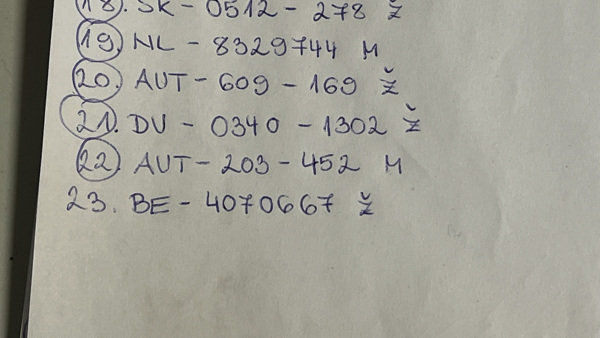 18. SK - 0512 - 278 Ž
19. NL - 8329744 M
20. AUT - 609 - 169 Ž
21. DV - 0340 - 1302 Ž
22. AUT - 203 - 452 M
23. BE - 4070667 Ž